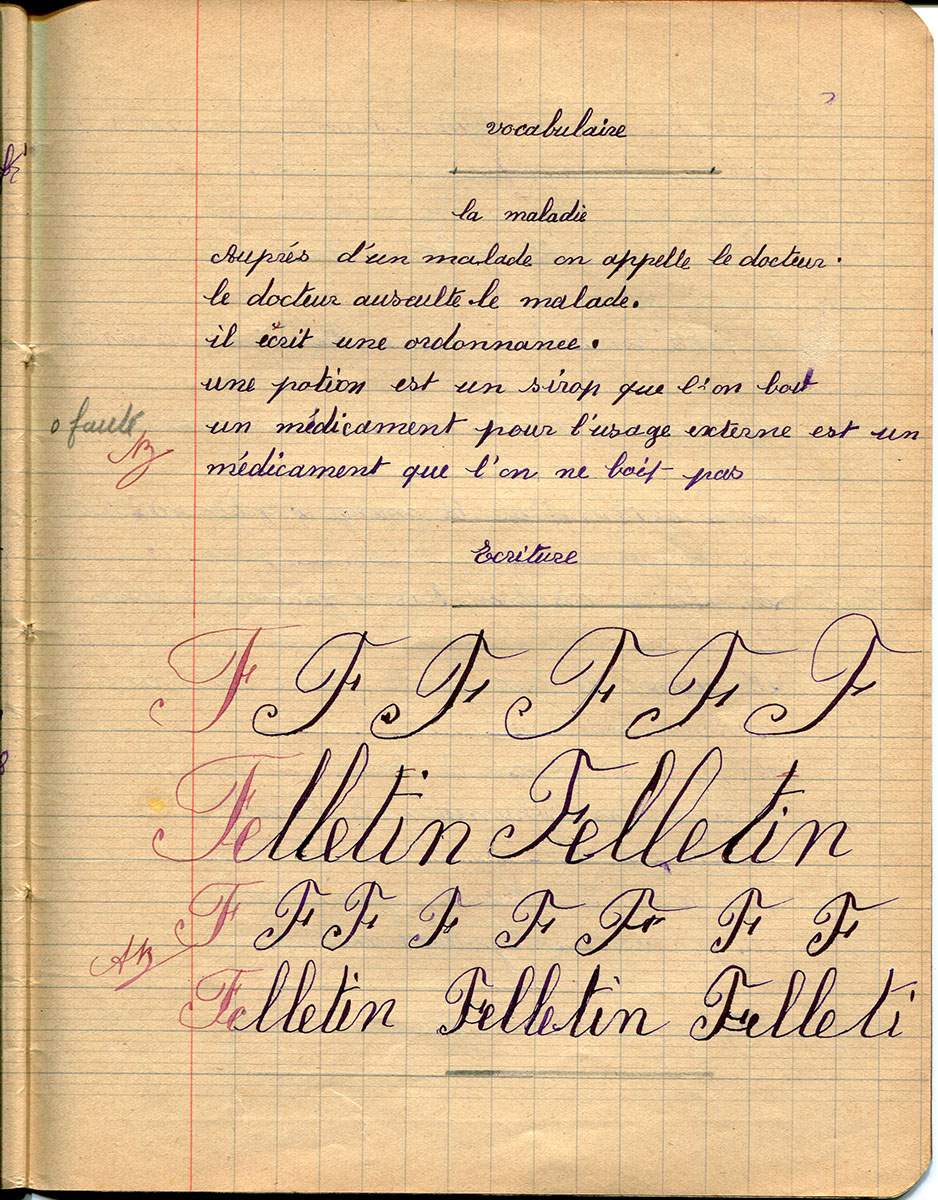 vocabulaire
la maladie
Auprés d'un malade on appelle le docteur.
le docteur ausculte le malade.
il écrit une ordonnance.
une potion est un sirop que l'on boit
0 faute
un médicament pour l'usage externe est un
médicament que l'on ne boit pas
Ecriture
F F F F F F
Felletin Felletin
F F F F F F F F
Felletin Felletin Felleti